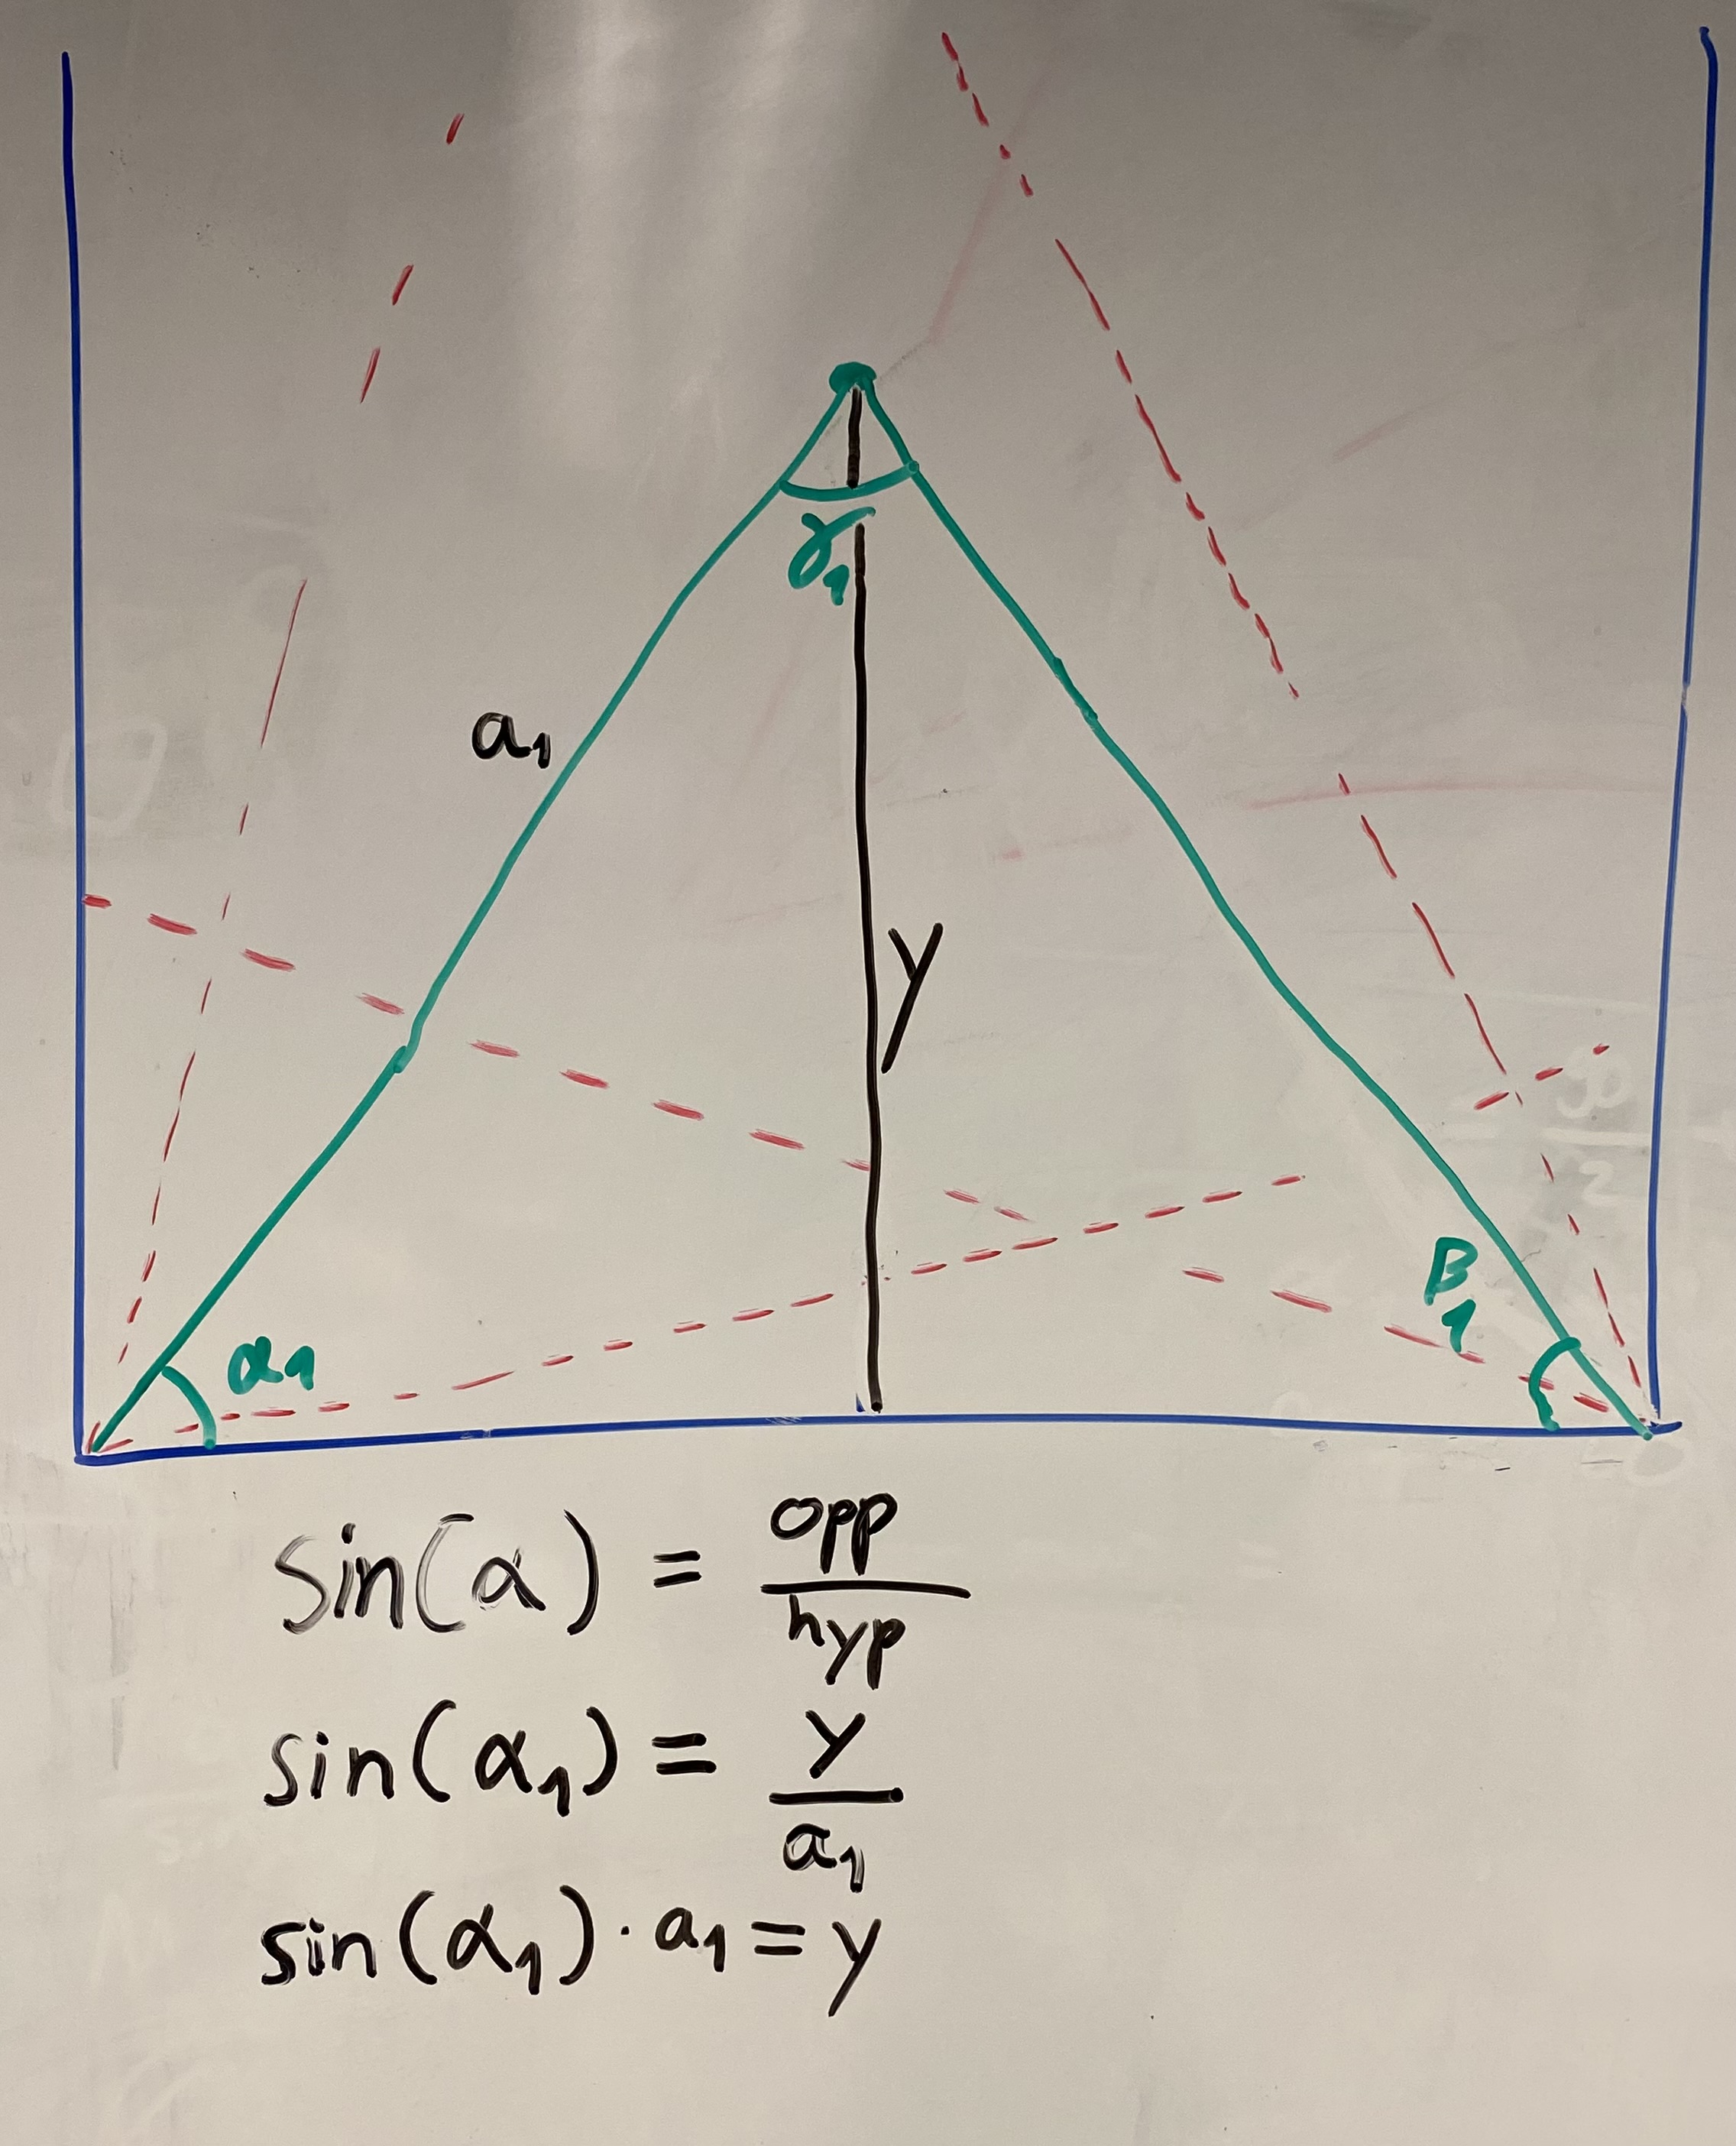 γ₁
a₁
y
β₁
α₁
sin(α) = opp/hyp
sin(α₁) = y/a₁
sin(α₁) · a₁ = y